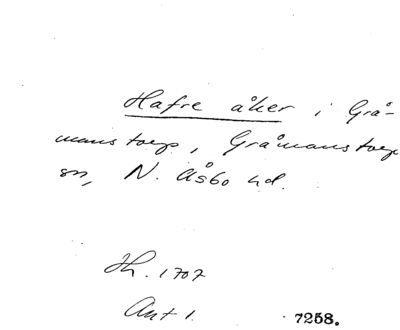 Hafre åker i Grå-
manstorp, Gråmanstorp
sn, N. Åsbo hd.
Jh. 1707
Ant 1.
7258.